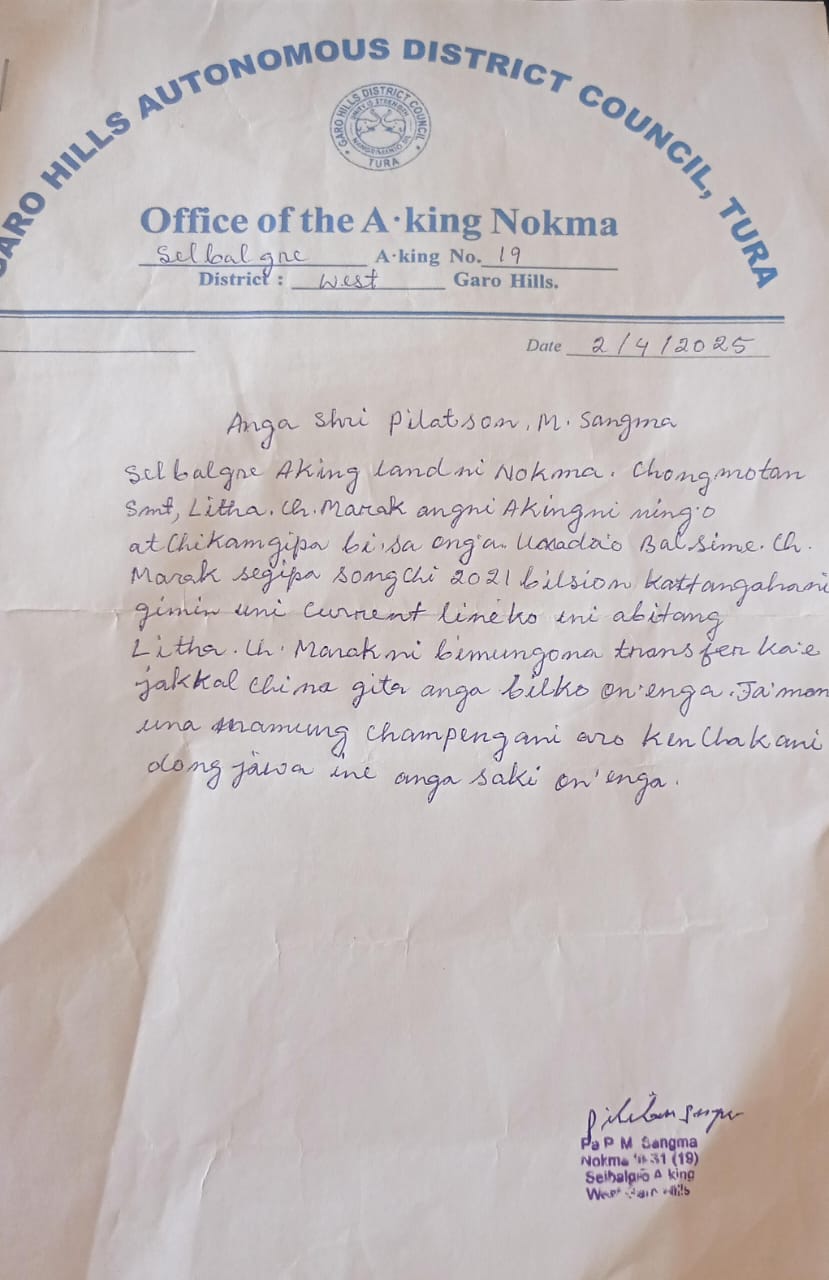 GARO HILLS AUTONOMOUS DISTRICT COUNCIL, TURA
GARO HILLS DISTRICT COUNCIL
UNITY IS STRENGTH
TURA
Office of the A·king Nokma
Selbalgre A·king No. 19
District : West Garo Hills.
Date 2/4/2025
Anga Shri Pilatson, M. Sangma
Selbalgre Aking land ni Nokma. Chongmotan
Smt, Litha. Ch. Marak angni Akingni ning·o
atchikamgipa bi·sa ong'a. Uoada'o Balsime. Ch.
Marak segipa songchi 2021 bilsion kattangahani
gimin uni current lineko ini abitang
Litha. Ch. Marak ni bimungona transfer ka·e
jakkalchina gita anga bilko on'enga. Ja'mon
una mamung champengani aro kenchakani
dongjawa ine anga saki on'enga.
Pa P M Sangma
Nokma 31 (19)
A king
West Hills